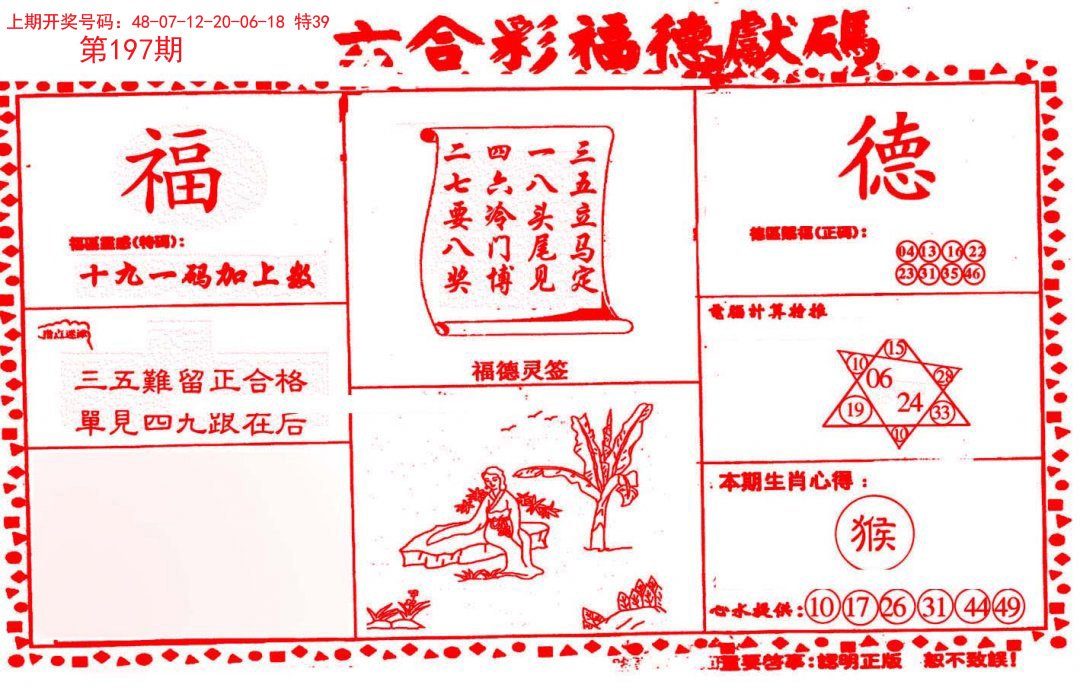 上期开奖号码：48-07-12-20-06-18 特39
第197期
六合彩福德獻碼
福
福區靈感(特碼)：
十九一码加上数
三五難留正合格
單見四九跟在后
三五立马定
一八头尾见
四六冷门博
二七要八奖
福德灵签
德
德區賜福(正碼)：
04 13 16 22
23 31 35 46
電腦計算精推
15
10 06 28
19 24 33
10
本期生肖心得：
猴
心水提供：10 17 26 31 44 49
重要啓事：認明正版 恕不致誤！